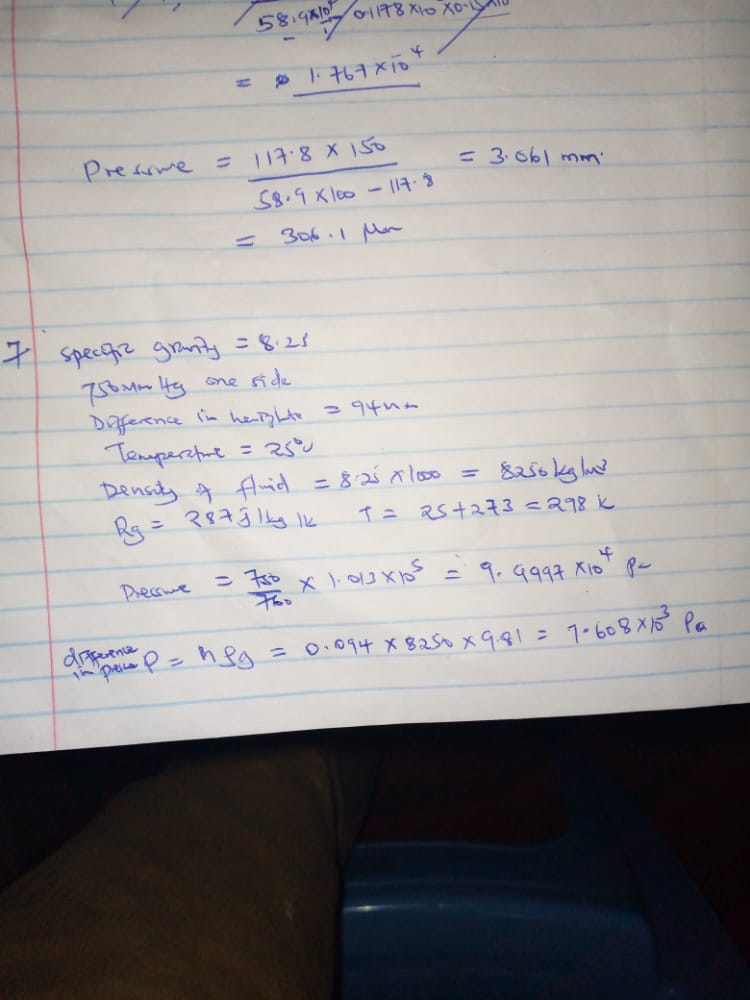 58.9×10 / 0.1178×10 ×0.15×10
= 1.767×10⁴
Pressure = 117.8 × 150 / 58.9 ×100 − 117.8 = 3.061 mm.
= 306.1 μm
7 Specific gravity = 8.25
750mm Hg one side
Difference in heights = 94mm
Temperature = 25°C
Density of fluid = 8.25 ×1000 = 8250 kg/m³
Rg = 287 J/kg/K T = 25+273 = 298 K
Pressure = 750/760 × 1.013×10⁵ = 9.9997 ×10⁴ Pa
difference in pressure P = hρg = 0.094 × 8250 × 9.81 = 7.608×10³ Pa